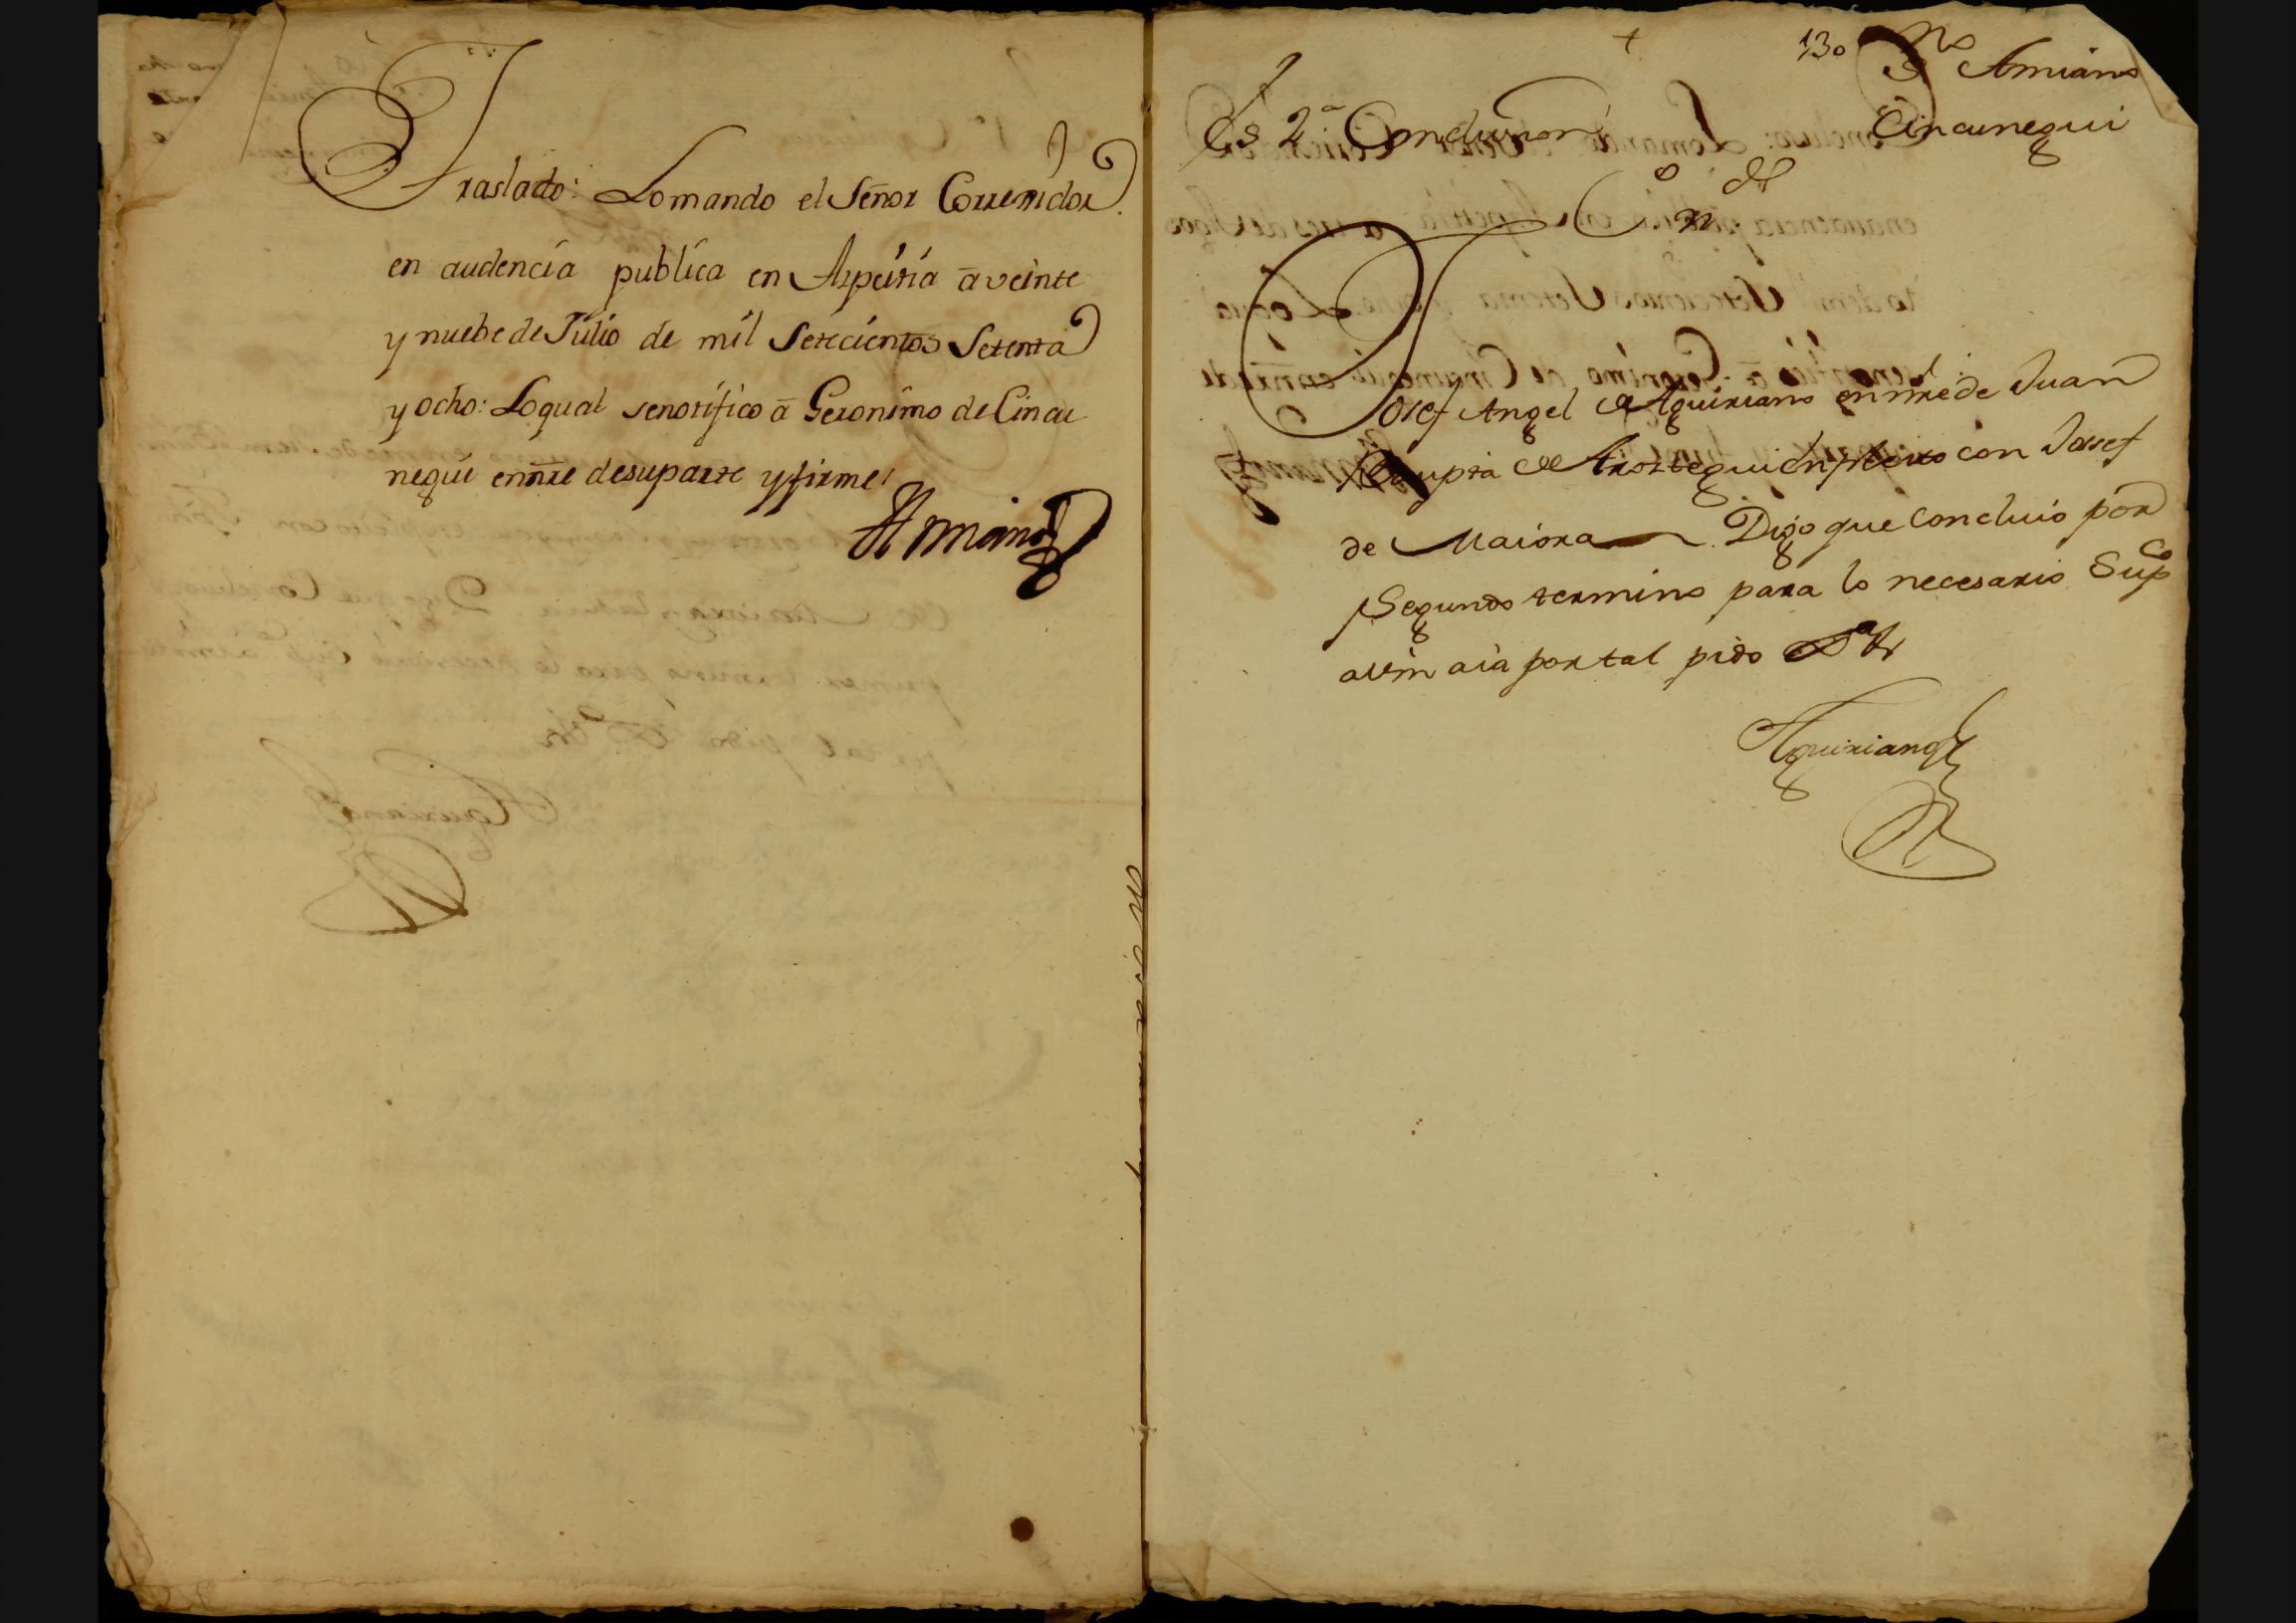 Traslado: Lomando el Señor Corregidor
en audencia publica en Azpeitia ā veinte
y nuebe de Julio de mil Setecientos Setenta
y ocho: Loqual senotifico ā Geronimo de Cincu
negui ennr̃e desuparte y firme
Amiano
130
Amiano
Cincunegui
Es 2ª Conclusion
Josef Angel de Aguiriano en nr̃e de Juan
Baupta de Aroztegui en pleito con Josef
de Maiora Digo que Concluio por
Segundo termino para lo necesario Supco
a Vm aia por tal pido
Aguiriano